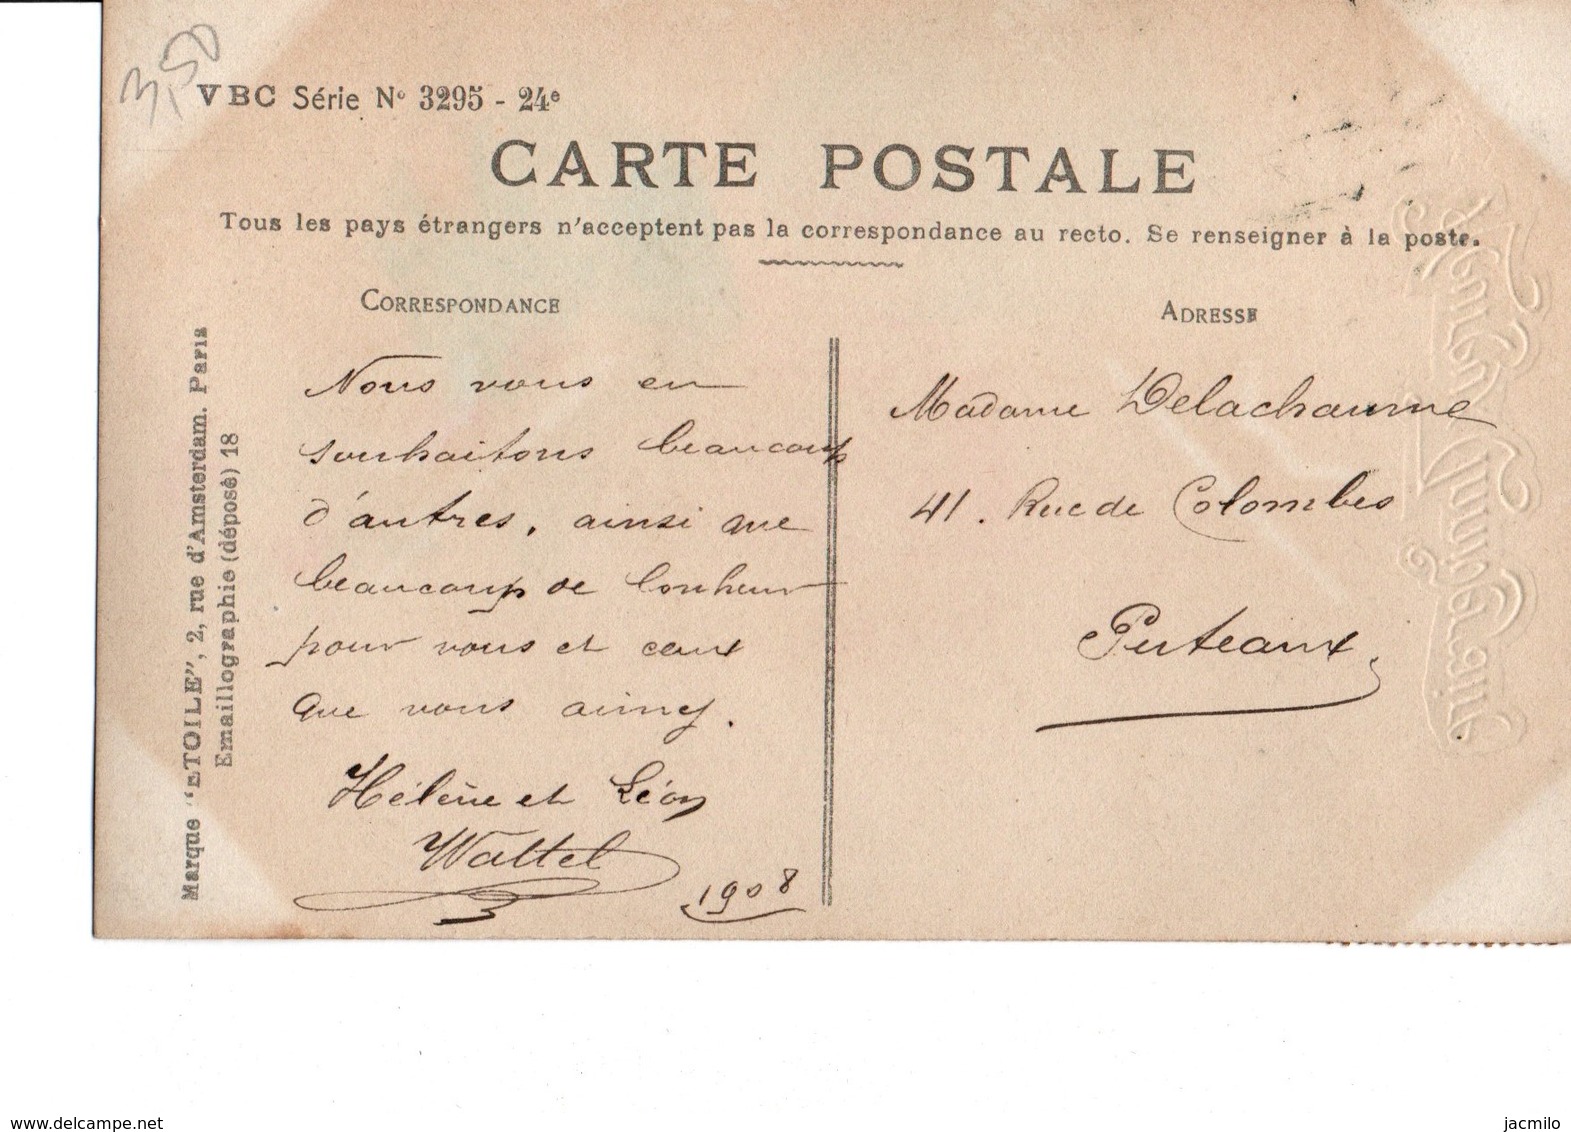 3,50
VBC Série No 3295 - 24e
CARTE POSTALE
Tous les pays étrangers n'acceptent pas la correspondance au recto. Se renseigner à la poste.
CORRESPONDANCE
ADRESSE
Marque "ETOILE", 2, rue d'Amsterdam. Paris
Emaillographie (déposé) 18
Nous vous en
souhaitons beaucoup
d'autres, ainsi que
beaucoup de bonheur
pour vous et ceux
que vous aimez.
Hélène et Léon
Wattel
1908
Madame Delachaume
41. Rue de Colombes
Puteaux
delcampe.net
jacmilo